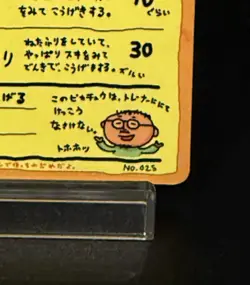 をみて こうげきする。
ぐらい
ねたふりをしていて、
やっぱり スキをみて
でんきで、こうげきする。
30
ズルい
げる
このピカチュウは、トレーナーににて
けっこう
なさけない。
トホホッ
NO.025